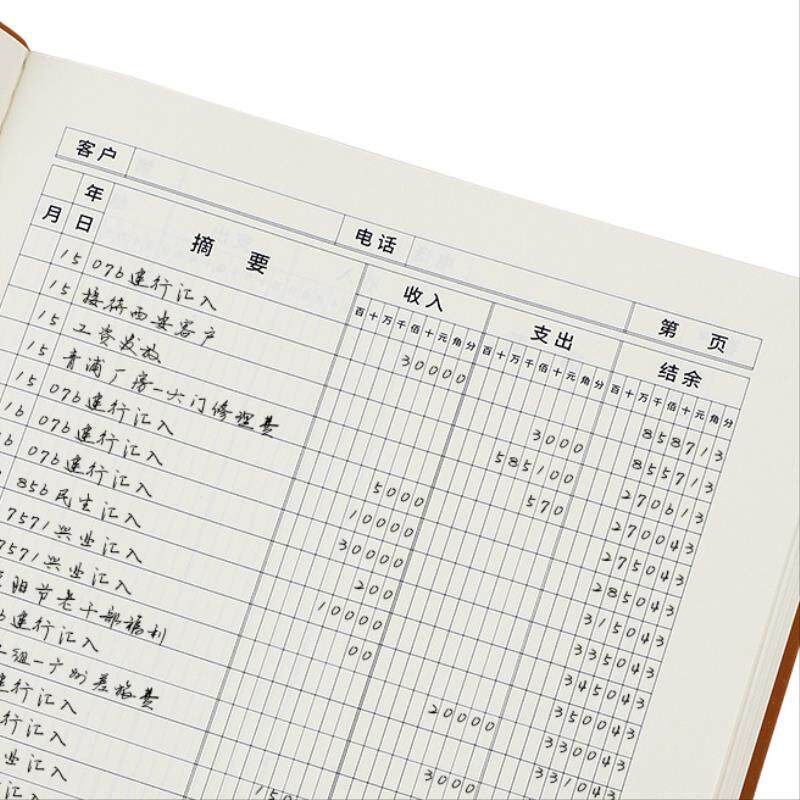 客户 电话 第 页
年
月 日 摘要 收入 支出 结余
百十万千佰十元角分 百十万千佰十元角分 百十万千佰十元角分
15 076建行汇入 30000 858713
15 接待西安客户 3000 855713
15 工资发放 585100 270613
15 青浦厂房一六门修理费 570 270043
15 076建行汇入 5000 275043
16 076建行汇入 10000 285043
6 076建行汇入 30000 315043
856民生汇入 200 335043
7571兴业汇入 10000 345043
7571兴业汇入 00 350043
阳节老干部福利 20000 330043
建行汇入 331043
组一广州差旅费 3000
建行汇入
行汇入 150
业汇入
汇入